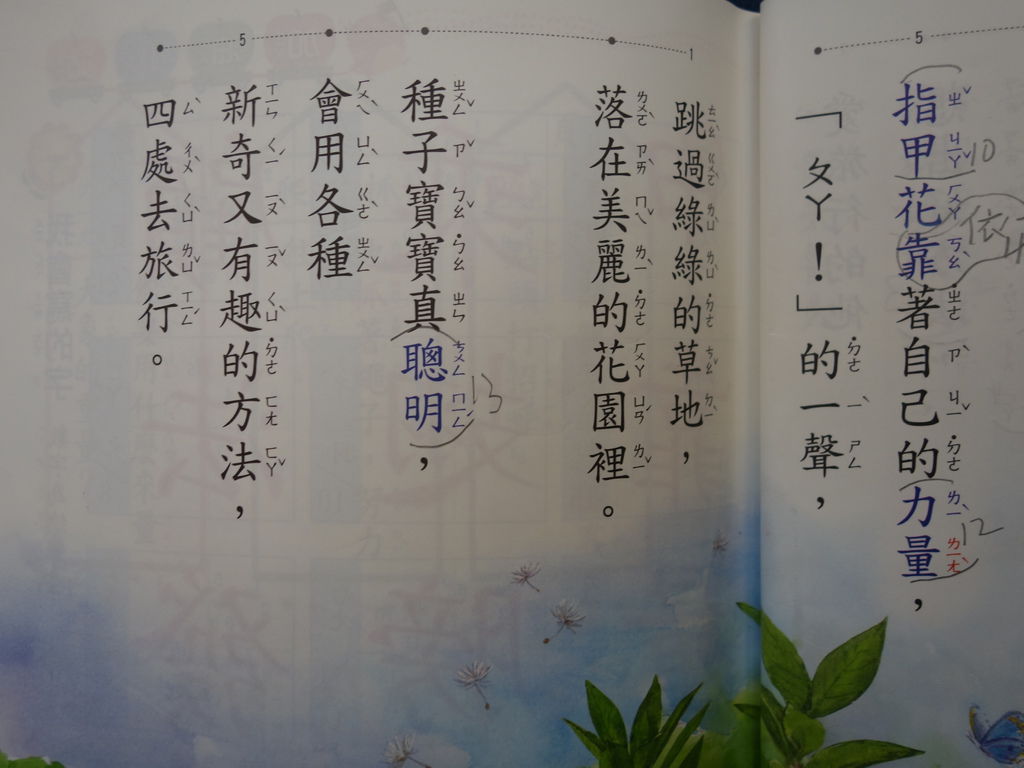 5
指甲花靠著自己的力量，
「ㄆㄚ！」的一聲，
1
跳過綠綠的草地，
落在美麗的花園裡。
種子寶寶真聰明，
會用各種
5
新奇又有趣的方法，
四處去旅行。
10
依
12
13